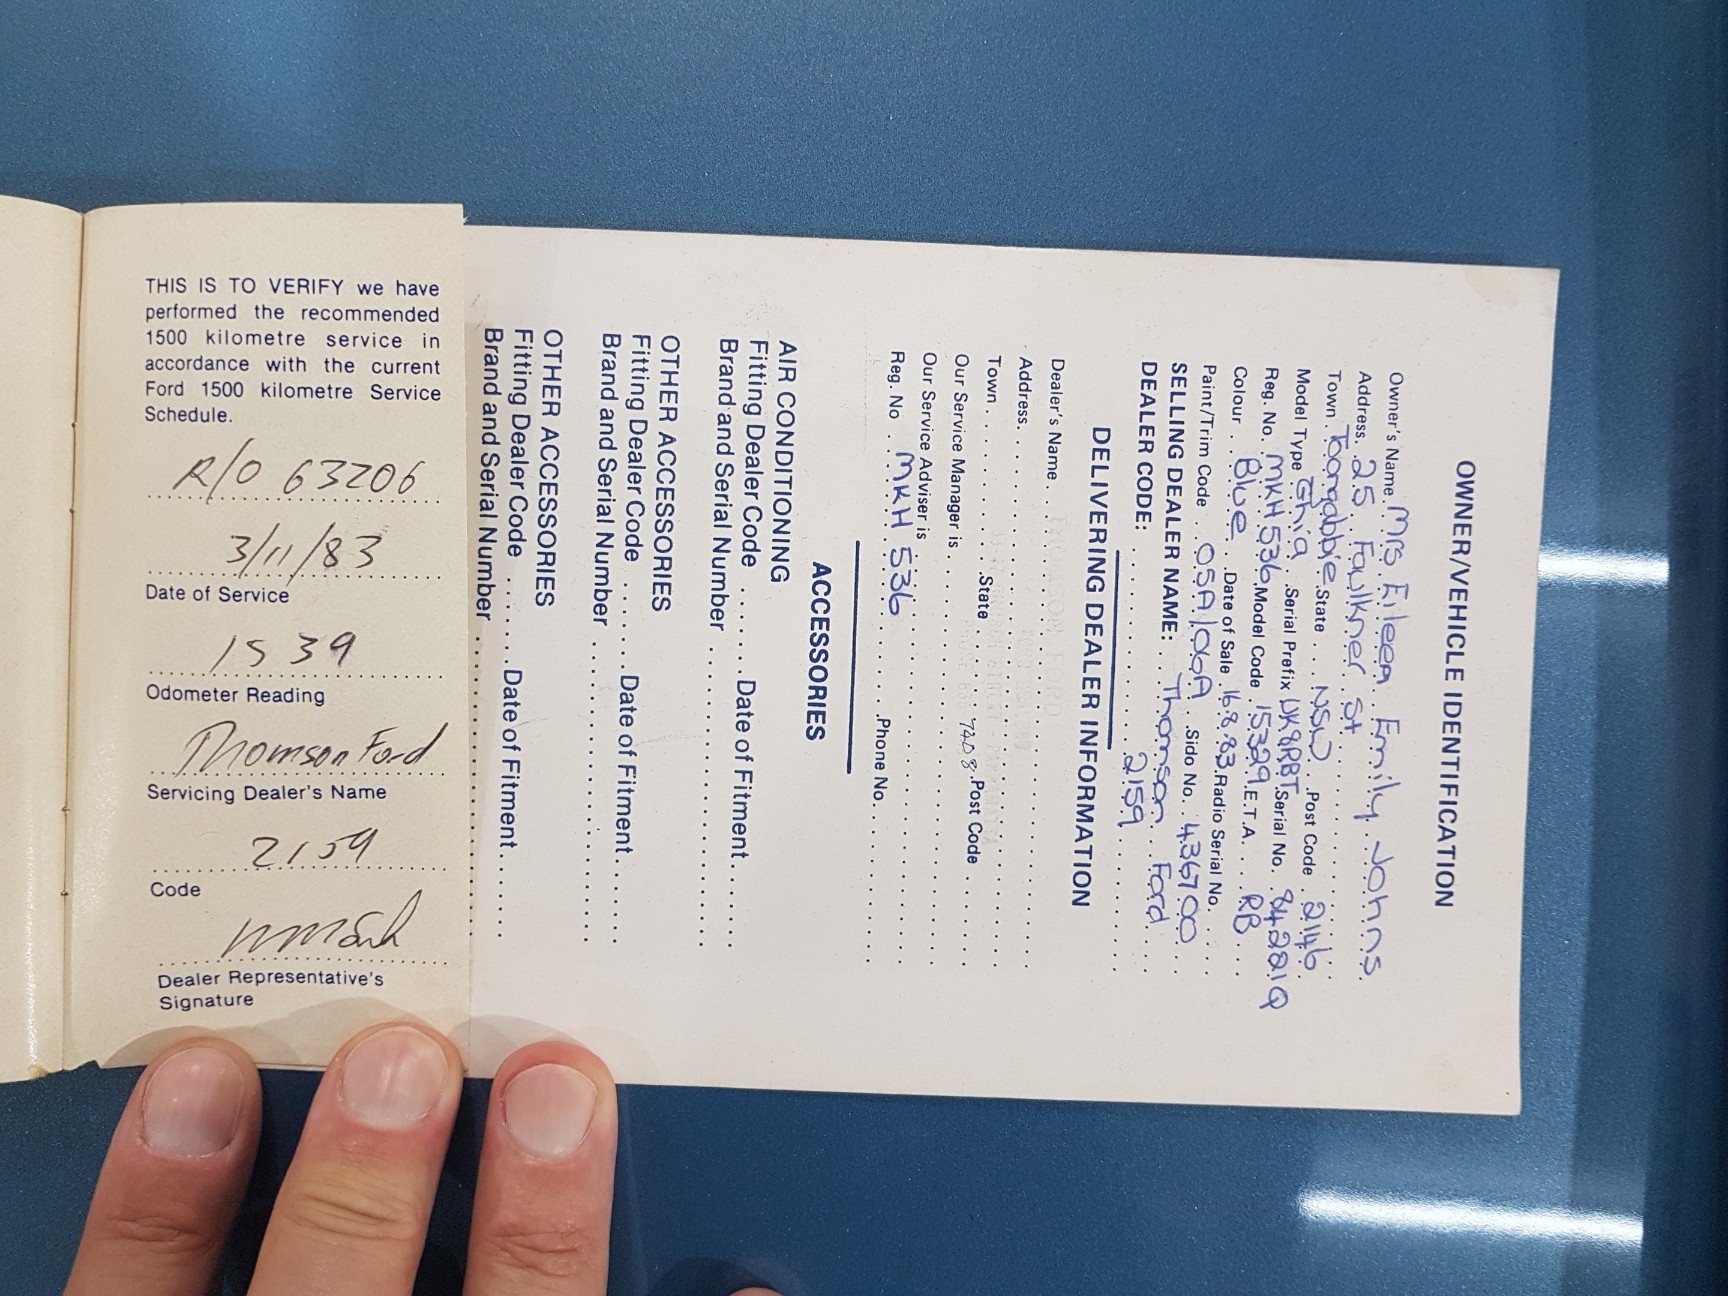 THIS IS TO VERIFY we have
performed the recommended
1500 kilometre service in
accordance with the current
Ford 1500 kilometre Service
Schedule.
R/O 63206
3/11/83
Date of Service
1539
Odometer Reading
Thomson Ford
Servicing Dealer's Name
2159
Code
Dealer Representative's
Signature
OWNER/VEHICLE IDENTIFICATION
Owner's Name Mrs Eileen Emily Johns
Address 25 Faulkner St
Town Toongabbie State NSW Post Code 2146
Model Type Ghia Serial Prefix UK8RBT Serial No. 84281Q
Reg. No. MKH536 Model Code 15329 E.T.A. RB
Colour Blue Date of Sale 16.8.83 Radio Serial No.
Paint/Trim Code 05A/06A Sido No. 436700
SELLING DEALER NAME: Thomson Ford
DEALER CODE: 2159
DELIVERING DEALER INFORMATION
Dealer's Name THOMSON FORD
Address
Town State Post Code
Our Service Manager is
Our Service Adviser is
Reg. No MKH 536 Phone No.
ACCESSORIES
AIR CONDITIONING
Fitting Dealer Code Date of Fitment
Brand and Serial Number
OTHER ACCESSORIES
Fitting Dealer Code Date of Fitment
Brand and Serial Number
OTHER ACCESSORIES
Fitting Dealer Code Date of Fitment
Brand and Serial Number